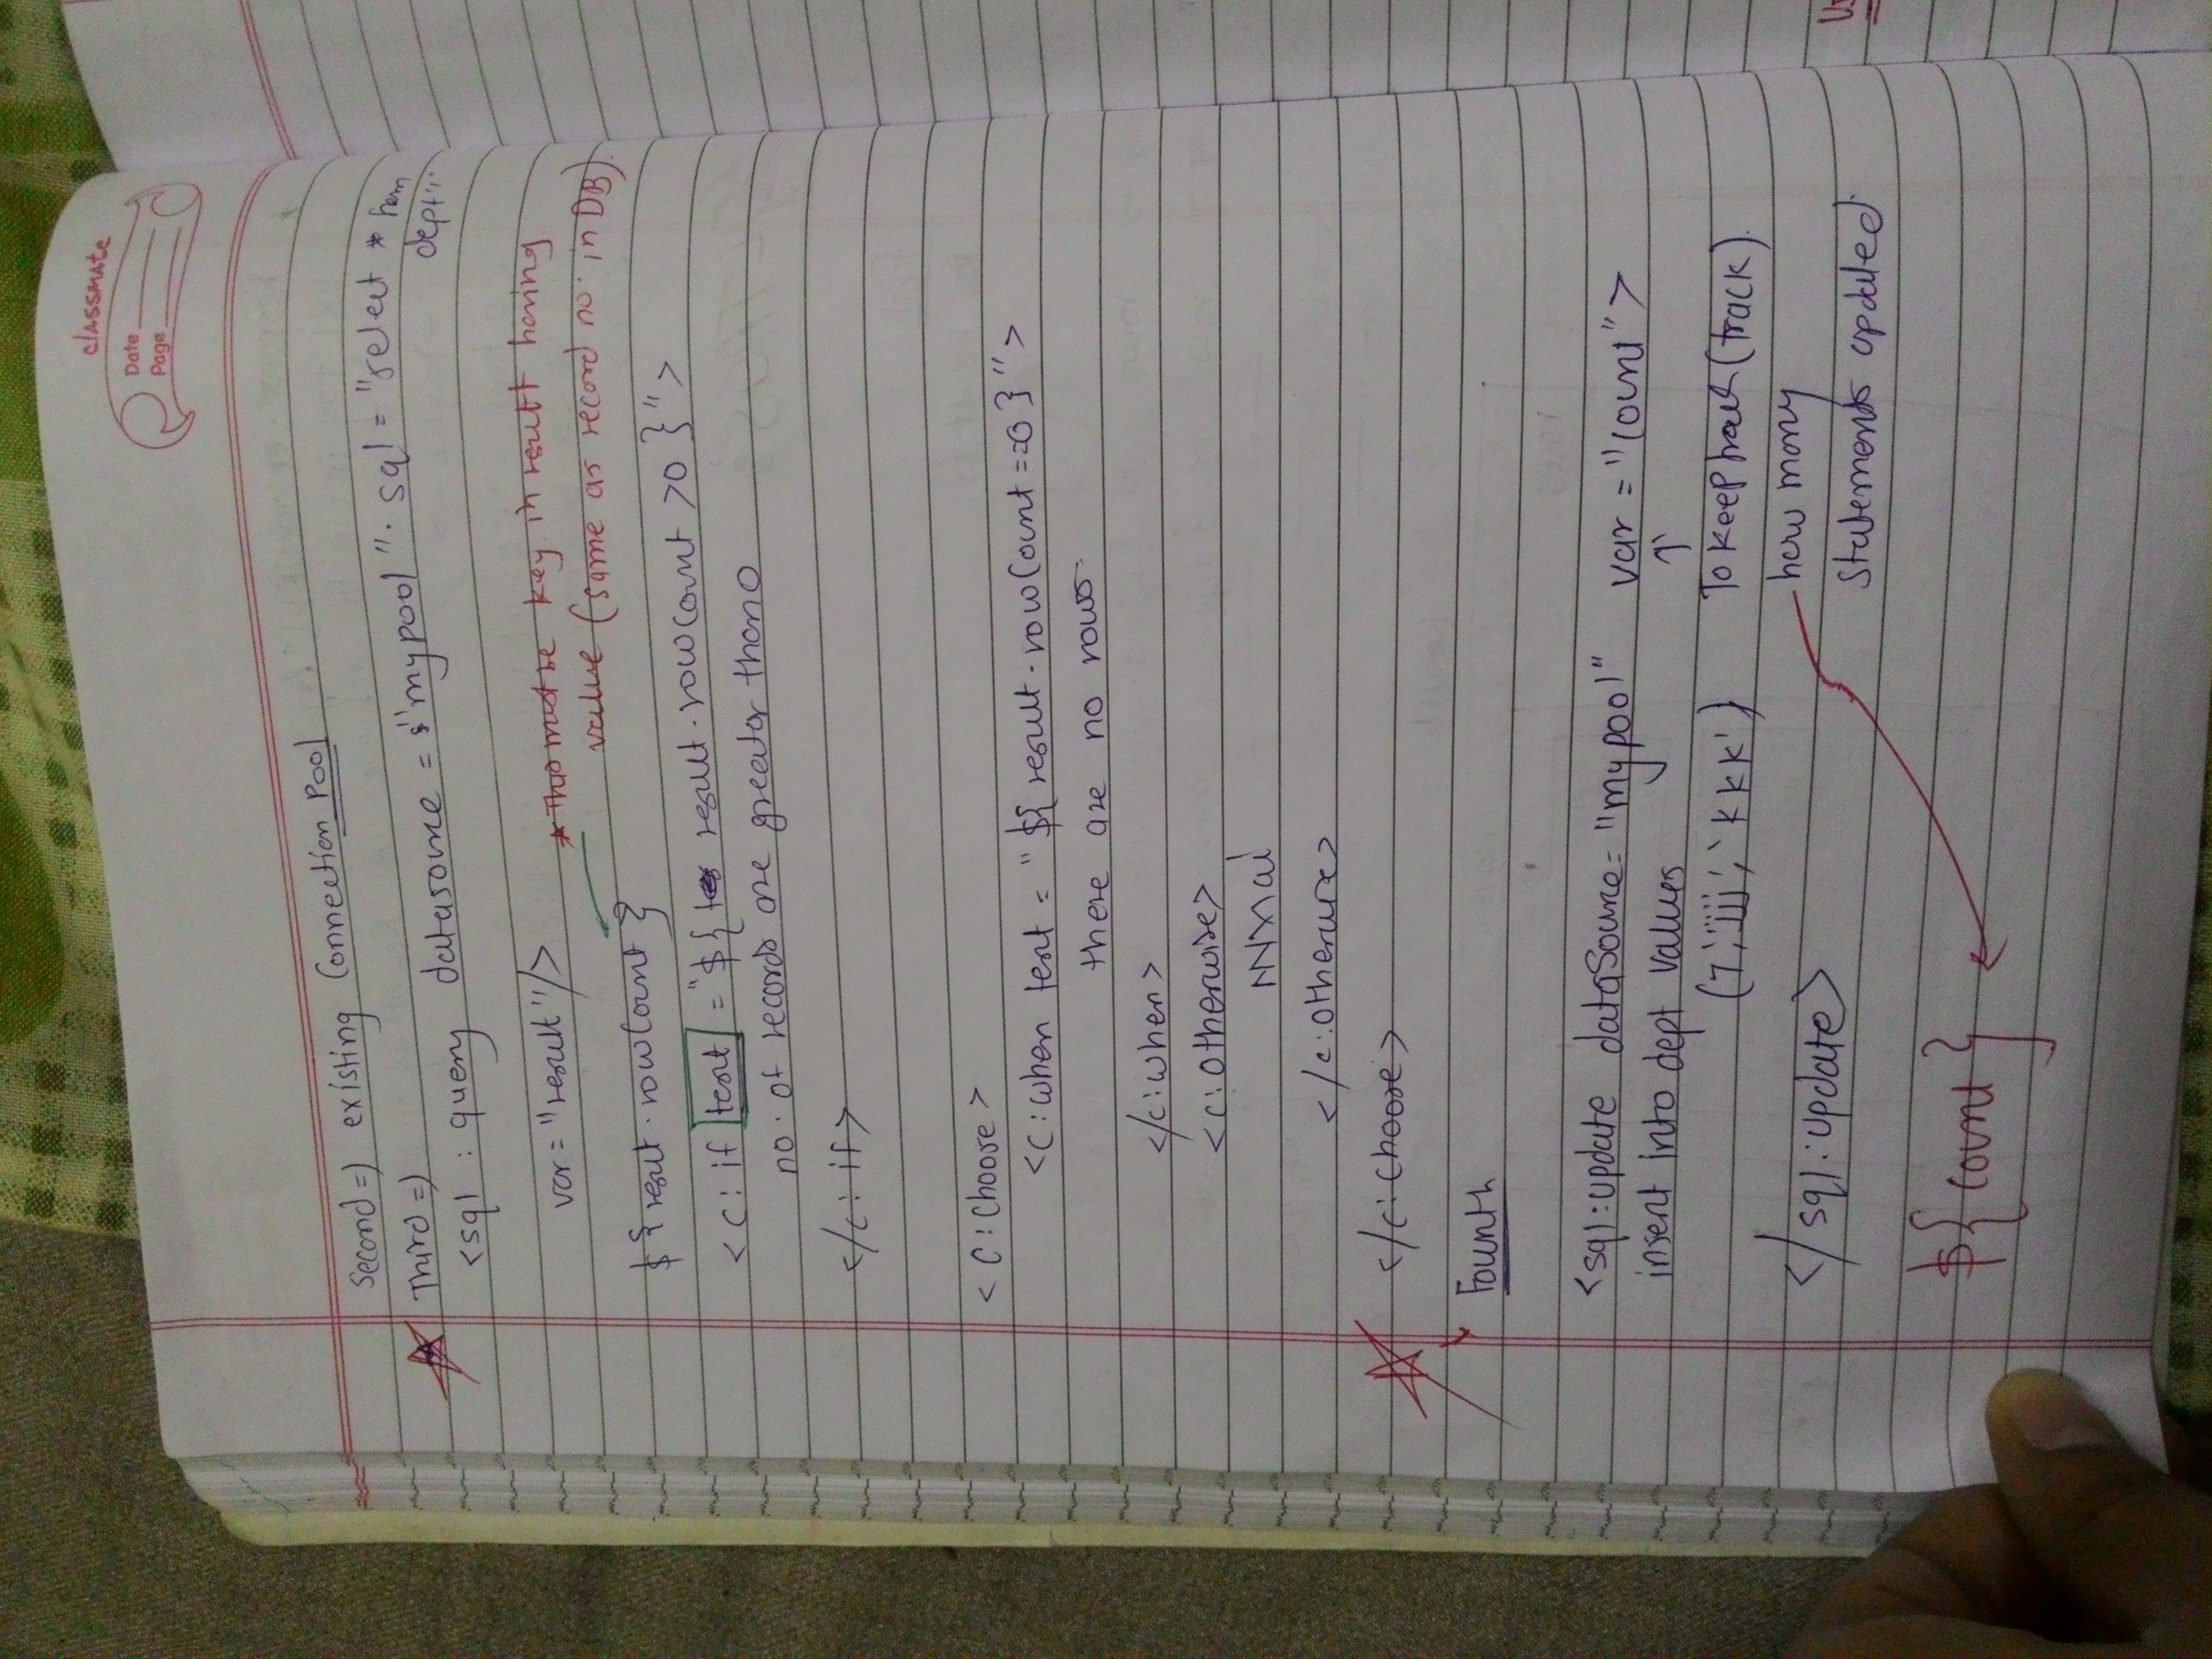 classmate
Date
Page
Second => existing Connection Pool
Third =>
<sql : query datasource = "mypool" sql = "select * from
dept"
var = "result"/>
* This must be key in result having
value (same as record no. in DB).
${ result.rowCount }
<c: if test = "${ result.rowCount >0 }">
no. of records are greater than 0
</c: if>
<c: choose>
<c:when test = "${ result.rowCount ==0 }">
there are no rows.
</c:when>
<c:otherwise>
</c:otherwise>
</c: choose>
Fourth
<sql:update dataSource= "mypool" var = "count">
insert into dept values
↑
(7,'jjj', 'kkk') To keep track (track).
</sql:update>
how many
statements updated
${ count }